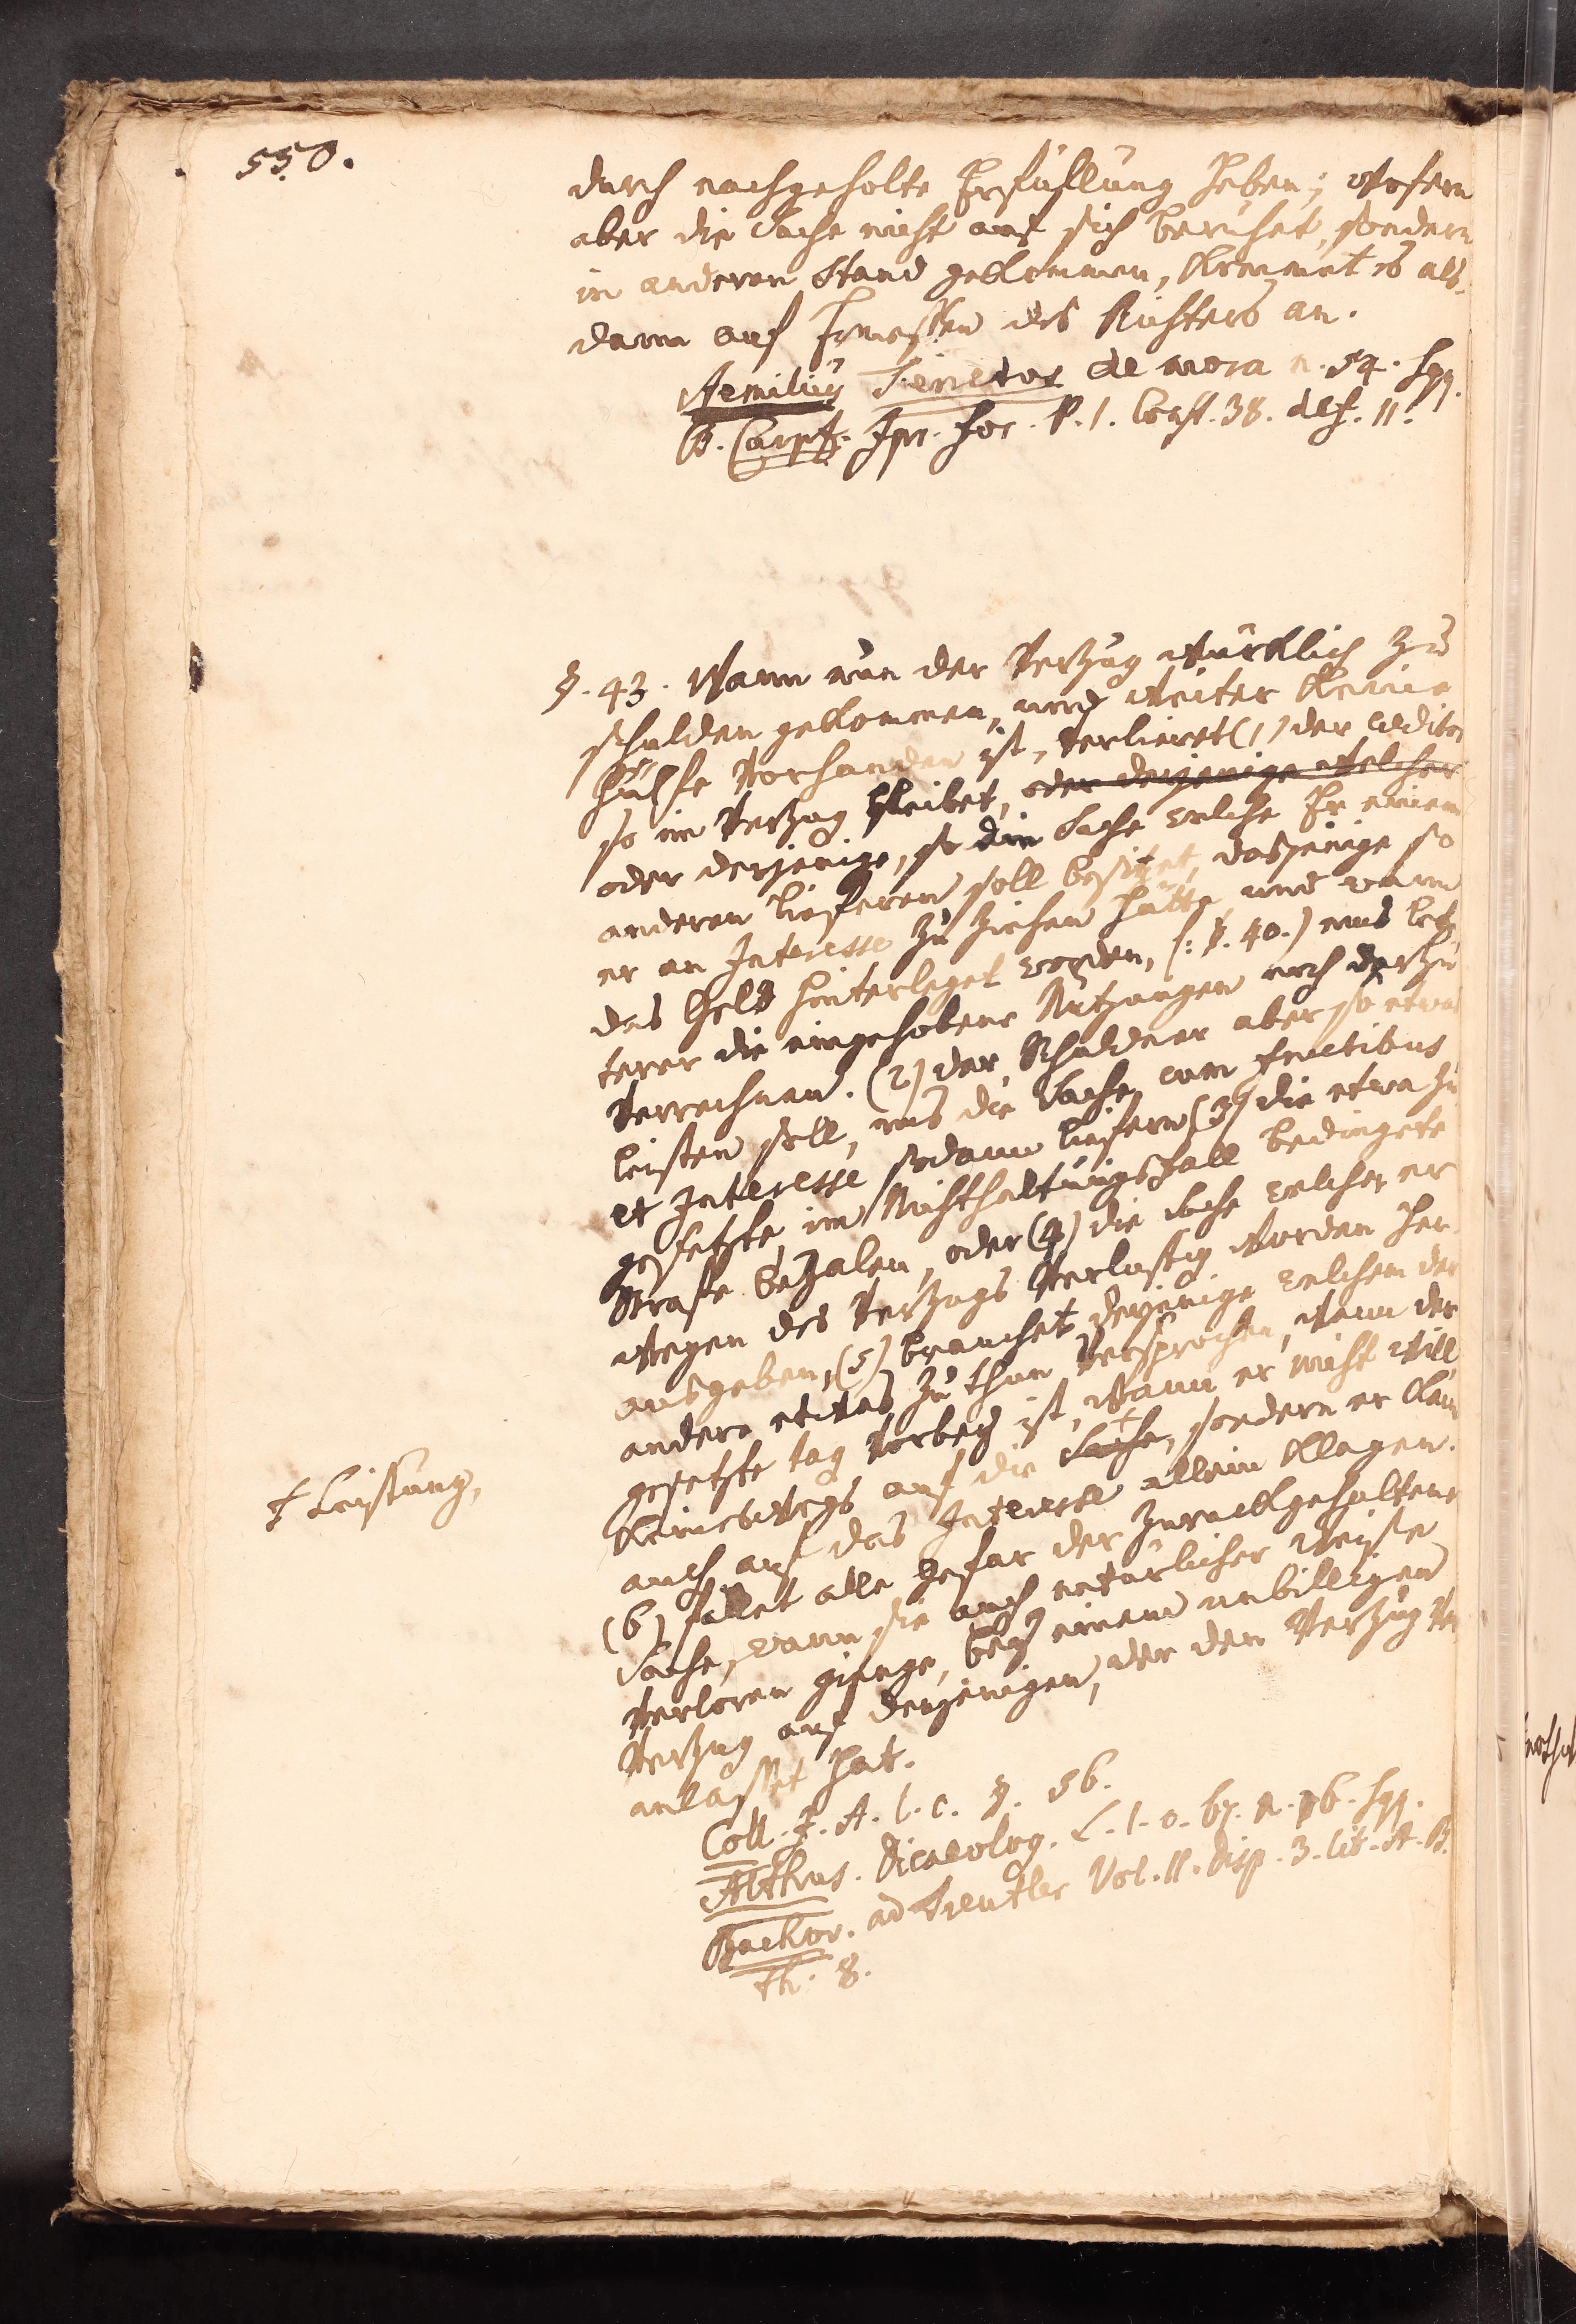 550.
durch nachgeholte Erfüllung heben; wofern
aber die Sache nicht auf sich beruhet, sondern
in anderen Stand gekommen, kommet es als-
dann auf Ermessen des Richters an.
Aemilius Ferretus de mora n. 54. sqq.
B. Carpz. Jpr. for. P. 1. Const. 38. def. 11.
§. 43. Wann nun der Verzug würklich zu
schulden gekommen, und weiter keine
hülfe vorhanden ist, verlieret (1) der creditor
so im Verzug bleibet, oder derjenige welcher
oder derjenige, so die Sache welche Er einem
anderen lieferen soll besitzet, dasjenige so
er an Interesse zu ziehen hätte, und wann
das Geld hinterleget worden, (: §. 40.) mus letz-
terer die eingehobene Nutzungen noch darzu
verrechnen. (2) der Schuldner aber so etwas
leisten soll, mus die Sache cum fructibus
et Interesse sodann liefern (3) die etwa zu
gesetzte im Nichthaltungsfall bedingete
Strafe bezalen, oder (4) die Sache welcher er
wegen des Verzugs verlustig worden her-
ausgeben, (5) brauchet derjenige welchem der
andere etwas zu thun versprochen, wann der
gesetzte tag vorbey ist, wann er nicht will
keineswegs auf die Sache, sondern er kan
† Leistung,
auch auf das Interesse allein klagen.
(6) fället alle gefar der zurückgehaltene
Sache, wann sie auch natürlicher Weise
verloren gienge, bey einem unbilligen
Verzug auf denjenigen, der den Verzug ver-
anlasset hat.
Coll. J. A. l. c. §. 56.
Althus. Dicaeolog. L. 1. c. 67. n. 26. sqq.
Bachov. ad Treutler Vol. II. Disp. 3. lit. A. B.
th. 8.